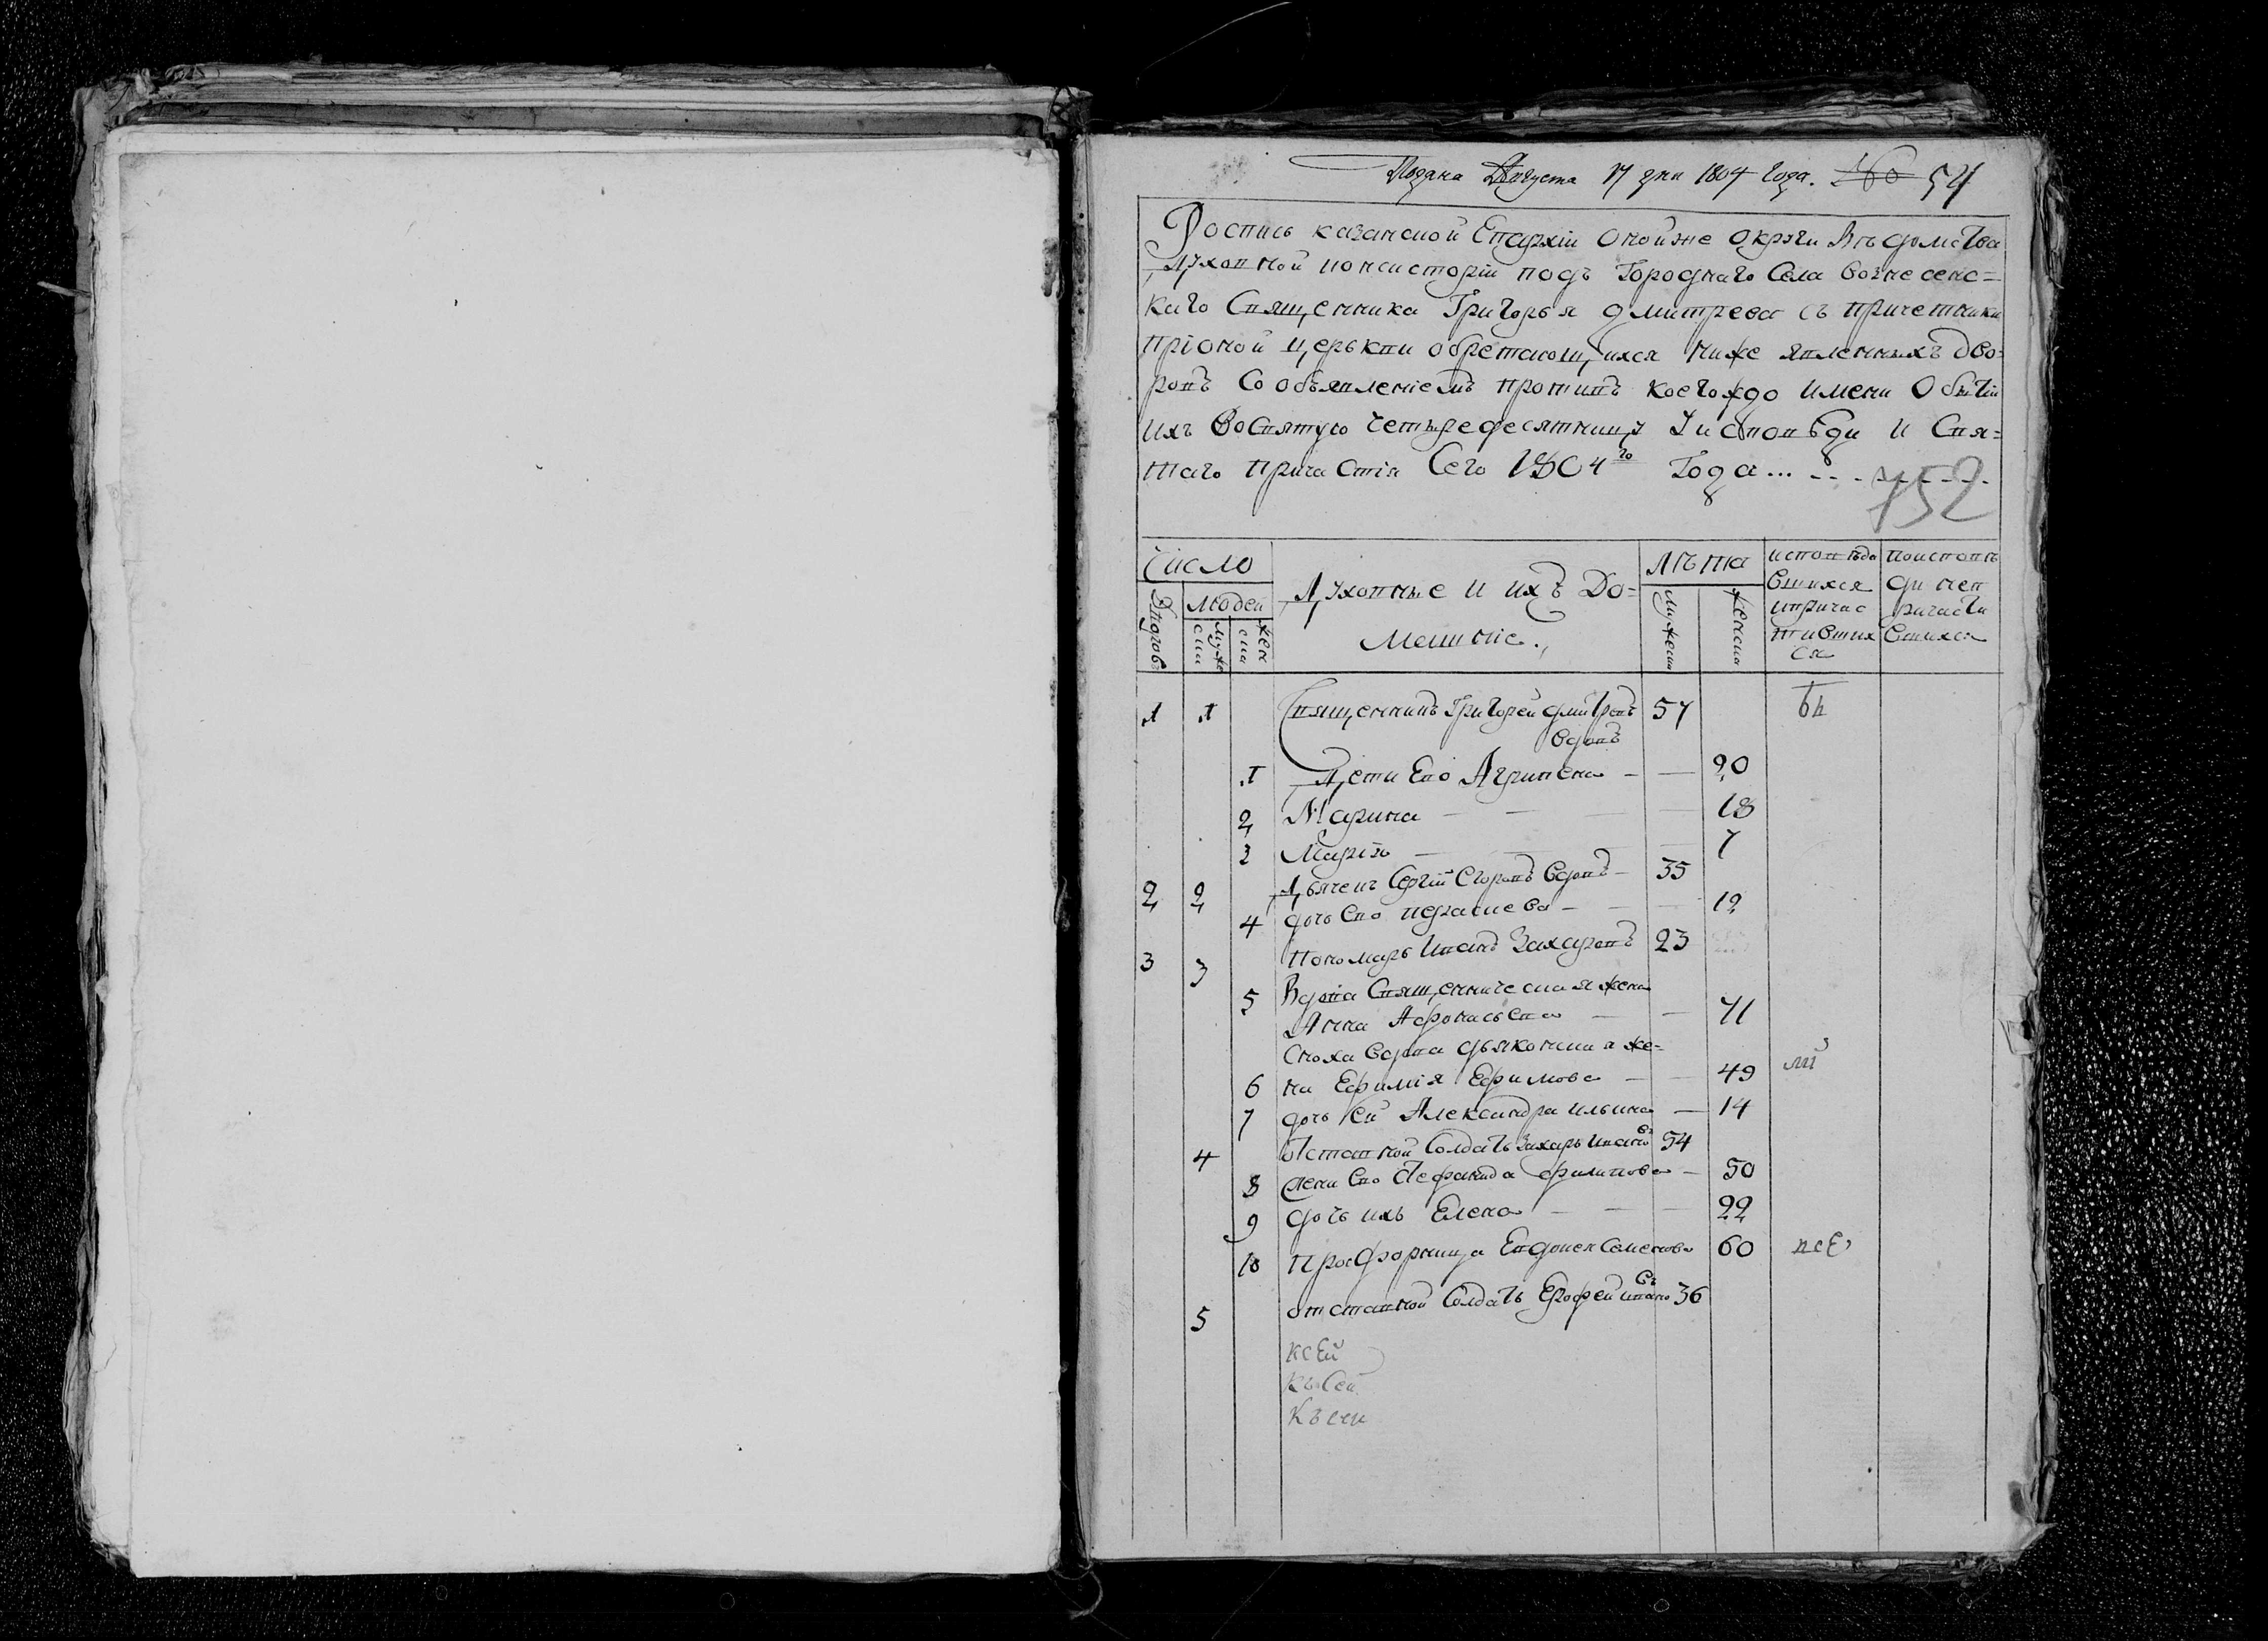 Подана Августа 17 дня 1804 года. 54
Роспись казанской Епархіи оной же округи Вѣдомства
Духовной консисторіи подъ Городнаго Села вознесенс=
каго Священника Григорья дмитрева съ причетники
при оной церькви обретающихся ниже явленныхъ дво=
ровъ со объявленіемъ противъ коегождо имени о бытіи
ихъ во святую четыредесятницу у исповѣди и свя=
таго причастія сего 1804го Года...
752
Число
Духовные и ихъ до=
машніе.
лѣта
дворовъ
людей
мужеска
женска
мужеска
женска
исповѣдо
вшихся
и причас
тивших
ся
по исповѣ
ди не п
ричасти
вшихся
1 1 Священникъ Григорей дмитревъ 57
вдовъ
1 Дети Ево Агрипена 20
2 Марина 18
3 Марія 7
2 2 Дьячекъ Сергій Егоровъ вдовъ 35
4 дочь Ево 12
3 3 Пономарь Иванъ Захаровъ 23
5 Вдова Священническая жена
Анна Афонасьева 71
Сноха вдова дьяконская же=
6 на Ефимія Ефимова 49
7 дочь Ей Александра ильина 14
4 Отставной Солдатъ Захаръ Ивановъ 54
8 жена Ево филипова 50
9 дочь ихъ Елена 22
10 Просфорница Евдокея Семенова 60 всѣ
5 отставной Солдатъ Ерофей ивановъ 36
к сей
къ сей
Къ сей